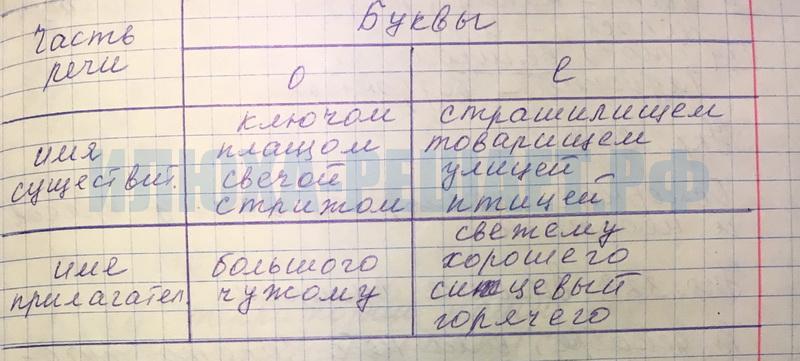 Часть речи
Буквы
о
е
имя существит.
ключом
плащом
свечой
стрижом
страшилищем
товарищем
улицей
птицей
име прилагател.
большого
чужому
свежему
хорошего
ситцевый
горячего